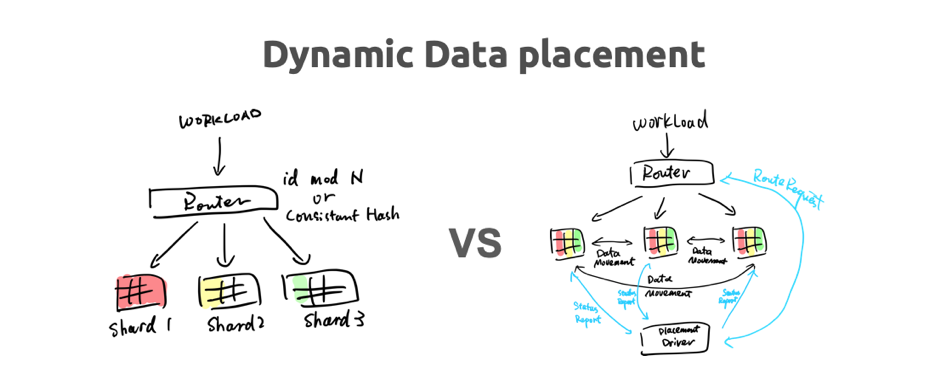 Dynamic Data placement
WORKLOAD
Router
id mod N
or
Consistant Hash
Shard 1
Shard 2
Shard 3
VS
Workload
Router
Route Request
Data
Movement
Data
Movement
Data
Movement
Status
Report
Status
Report
Status
Report
Placement
Driver